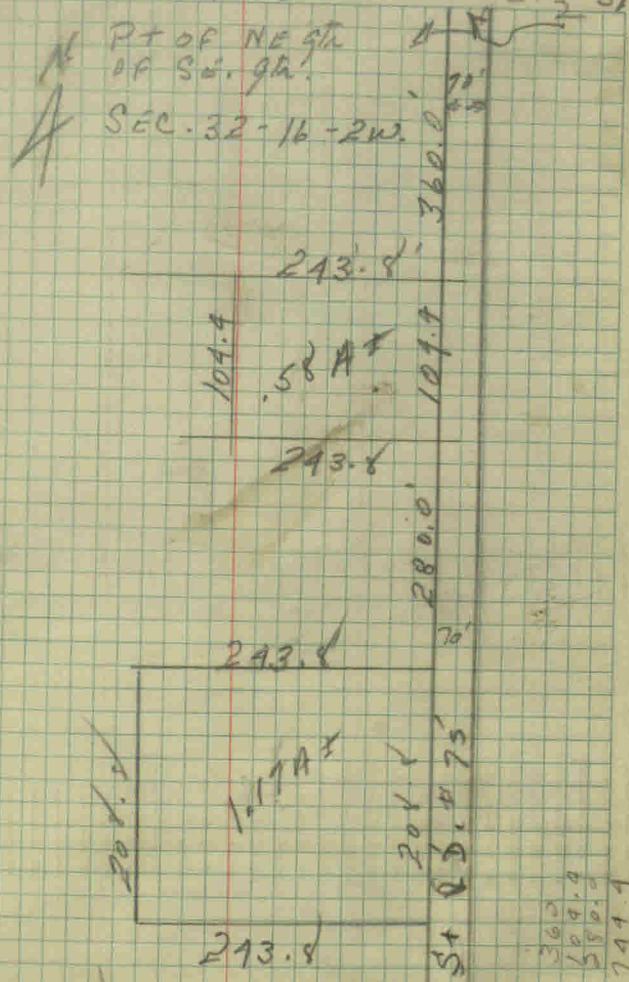 N
Pt OF NE qtr
OF SE. qtr.
SEC. 32-16-2W.
2
70'
360.0'
243.8'
104.4
.58 A ±
104.4
243.8
280.0'
70'
243.8'
208.8
1.17 A ±
208.8
243.8'
St RD. # 75
360
104.4
280.0
744.4